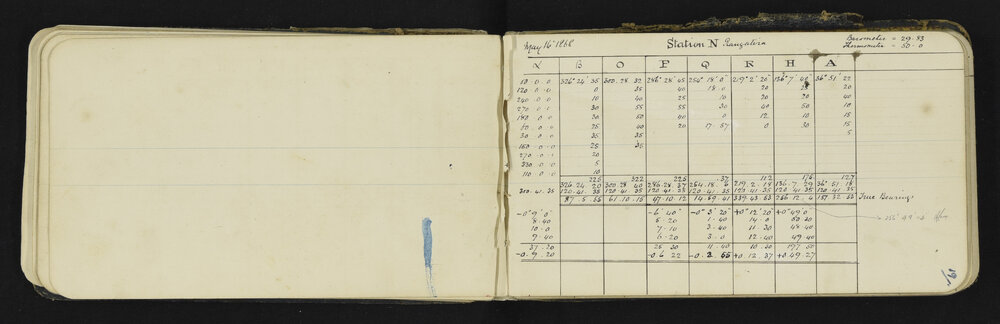 May 16 1868 Station N Rangatira Barometer = 29.83
Thermometer = 50.0
α B O F Q K H A
10.0.0 326° 24' 35 300.28.32 286° 28' 45 254° 18' 0" 219° 2' 20" 136° 7' 40" 36° 51' 22
120.0.0 0 35 40 18.0 20 20
240.0.0 10 40 25 10 20 40
270.0.0 30 55 55 30 40 50 10
180.0.0 30 50 40 0 12 10 15
25 40 20 17.57 0 30 15
30.0.0 35 35 5
25 35
270.0.0 20
330.0.0 5
110.0.0 10
225 322 225 .37 112 176 127
326.24.20 300.28.40 286.28.37 254.18.6 219.2.18 136.7.29 36°.51.18
120.41.35 120.41.35 120.41.35 120.41.35 120.41.35 120.41.35 120.41.35
87.5.55 61.10.15 47.10.12 14.59.41 339.43.53 256.12.4 157.32.53 True Bearings
-0° 9' 0" -6' 40" -0° 3' 20" +0° 12' 20" +0° 49' 0
8.40 5.20 1.40 14.0 50.30
10.0 7.10 3.40 11.30 48.40
9.40 6.20 3.0 12.40 49.40
37.20 25 30 11.40 10.30 197.50
-0.9.20 -0.6 22 -0.2.55 +0.12.37 +0.49.27